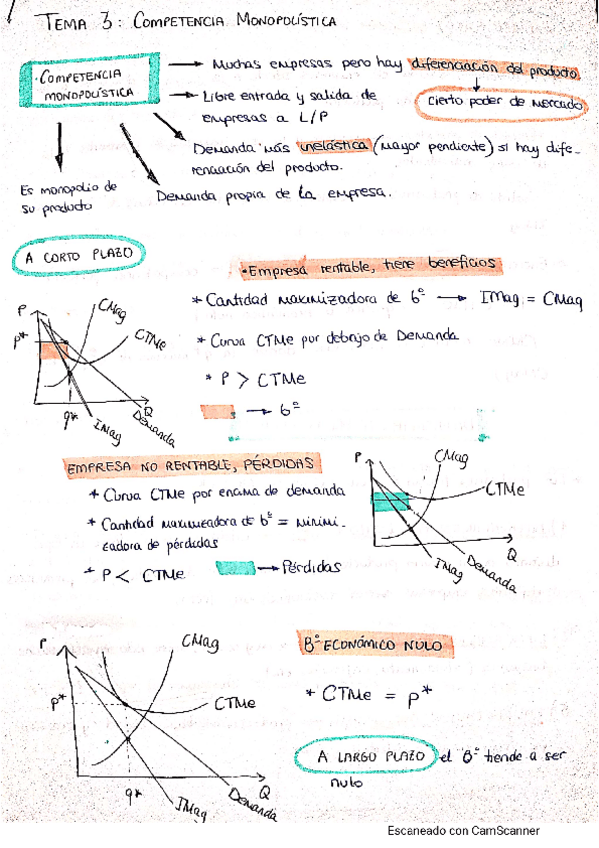 TEMA 3: COMPETENCIA MONOPOLÍSTICA
· COMPETENCIA
MONOPOLÍSTICA
Muchas empresas pero hay diferenciación del producto
Cierto poder de mercado
Libre entrada y salida de
empresas a L/P
Demanda más inelástica (mayor pendiente) si hay dife-
renciación del producto.
Es monopolio de
su producto
Demanda propia de la empresa.
A CORTO PLAZO
· Empresa rentable, tiene beneficios
* Cantidad maximizadora de bº → IMag = CMag
* Curva CTMe por debajo de Demanda
* P > CTMe
→ bº
P
P*
CMag
CTMe
q*
Q
IMag
Demanda
EMPRESA NO RENTABLE, PÉRDIDAS
* Curva CTMe por encima de demanda
* Cantidad maximizadora de bº = minimi-
zadora de pérdidas
* P < CTMe → Pérdidas
P
CMag
CTMe
Q
IMag
Demanda
P
P*
CMag
CTMe
q*
Q
IMag
Demanda
Bº ECONÓMICO NULO
* CTMe = P*
A LARGO PLAZO el Bº tiende a ser
nulo
Escaneado con CamScanner